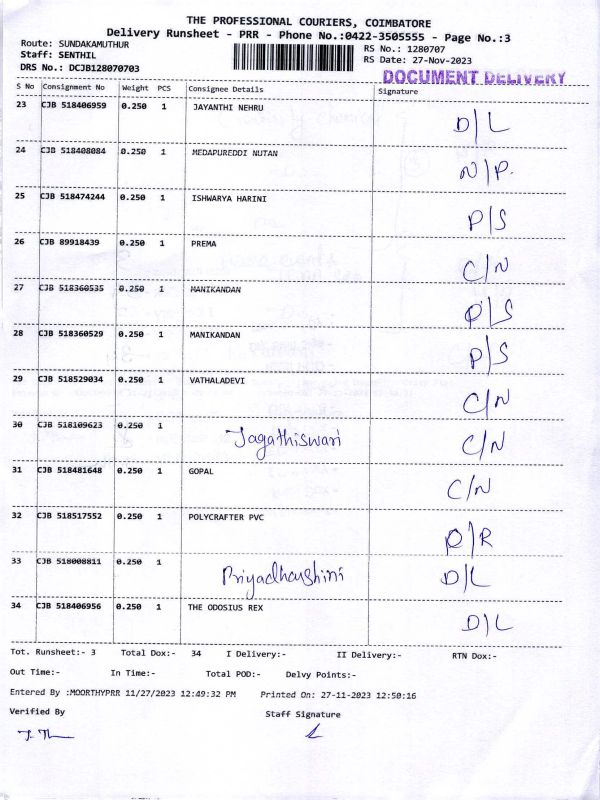 THE PROFESSIONAL COURIERS, COIMBATORE
Delivery Runsheet - PRR - Phone No.:0422-3505555 - Page No.:3
Route: SUNDAKAMUTHUR RS No.: 1280707
Staff: SENTHIL RS Date: 27-Nov-2023
DRS No.: DCJB128070703 DOCUMENT DELIVERY
S No Consignment No Weight PCS Consignee Details Signature
23 CJB 518406959 0.250 1 JAYANTHI NEHRU D/L
24 CJB 518408084 0.250 1 MEDAPUREDDI NUTAN N/P.
25 CJB 518474244 0.250 1 ISHWARYA HARINI P/S
26 CJB 89918439 0.250 1 PREMA C/N
27 CJB 518360535 0.250 1 MANIKANDAN P/S
28 CJB 518360529 0.250 1 MANIKANDAN P/S
29 CJB 518529034 0.250 1 VATHALADEVI C/N
30 CJB 518109623 0.250 1 Jagathiswari C/N
31 CJB 518481648 0.250 1 GOPAL C/N
32 CJB 518517552 0.250 1 POLYCRAFTER PVC O/R
33 CJB 518008811 0.250 1 Priyadharshini D/L
34 CJB 518406956 0.250 1 THE ODOSIUS REX D/L
Tot. Runsheet:- 3 Total Dox:- 34 I Delivery:- II Delivery:- RTN Dox:-
Out Time:- In Time:- Total POD:- Delvy Points:-
Entered By :MOORTHYPRR 11/27/2023 12:49:32 PM Printed On: 27-11-2023 12:50:16
Verified By Staff Signature